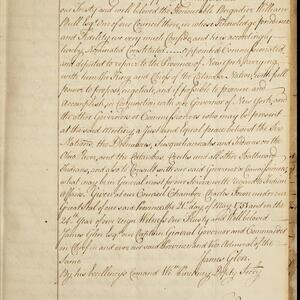 our Trusty and well beloved the Honourable Brigadier William
Bull Esqr. One of our Council there, in whose Knowledge prudence
and Fidelity we very much Confide, and he is accordingly
hereby Nominated Constituted appointed Commissionated
and deputed to repair to the Province of New York carrying
with him the King and Chiefs of the Catawba Nation, with full
power to propose, negotiate, and if possible to procure and
Accomplish in Conjunction with our Governor of New York, and
the other Governors or Commissioners who may be present
at the said Meeting a Just and Equal peace between the Six
Nations, the Delawares, Susquehannahs and Indians on the
Ohio River, and the Catawbas, Creeks and all other Southward
Indians, and also to Consult with our said Governor & Commissioners,
what may be in General most proper to be done with regard to Indian
Affairs. Given at our Council Chamber Charles Town under our
Great Seal of our said Province the 21st. day of May 1751 and in the
24th. Year of our Reign Witness our Trusty and Wellbeloved
James Glen Esqr. our Captain General Governor and Commander
in Chief in and over our said Province and Vice Admiral of the
Same
James Glen
By his Excellencys Comand Wm. Pinckney Depty. Secry.